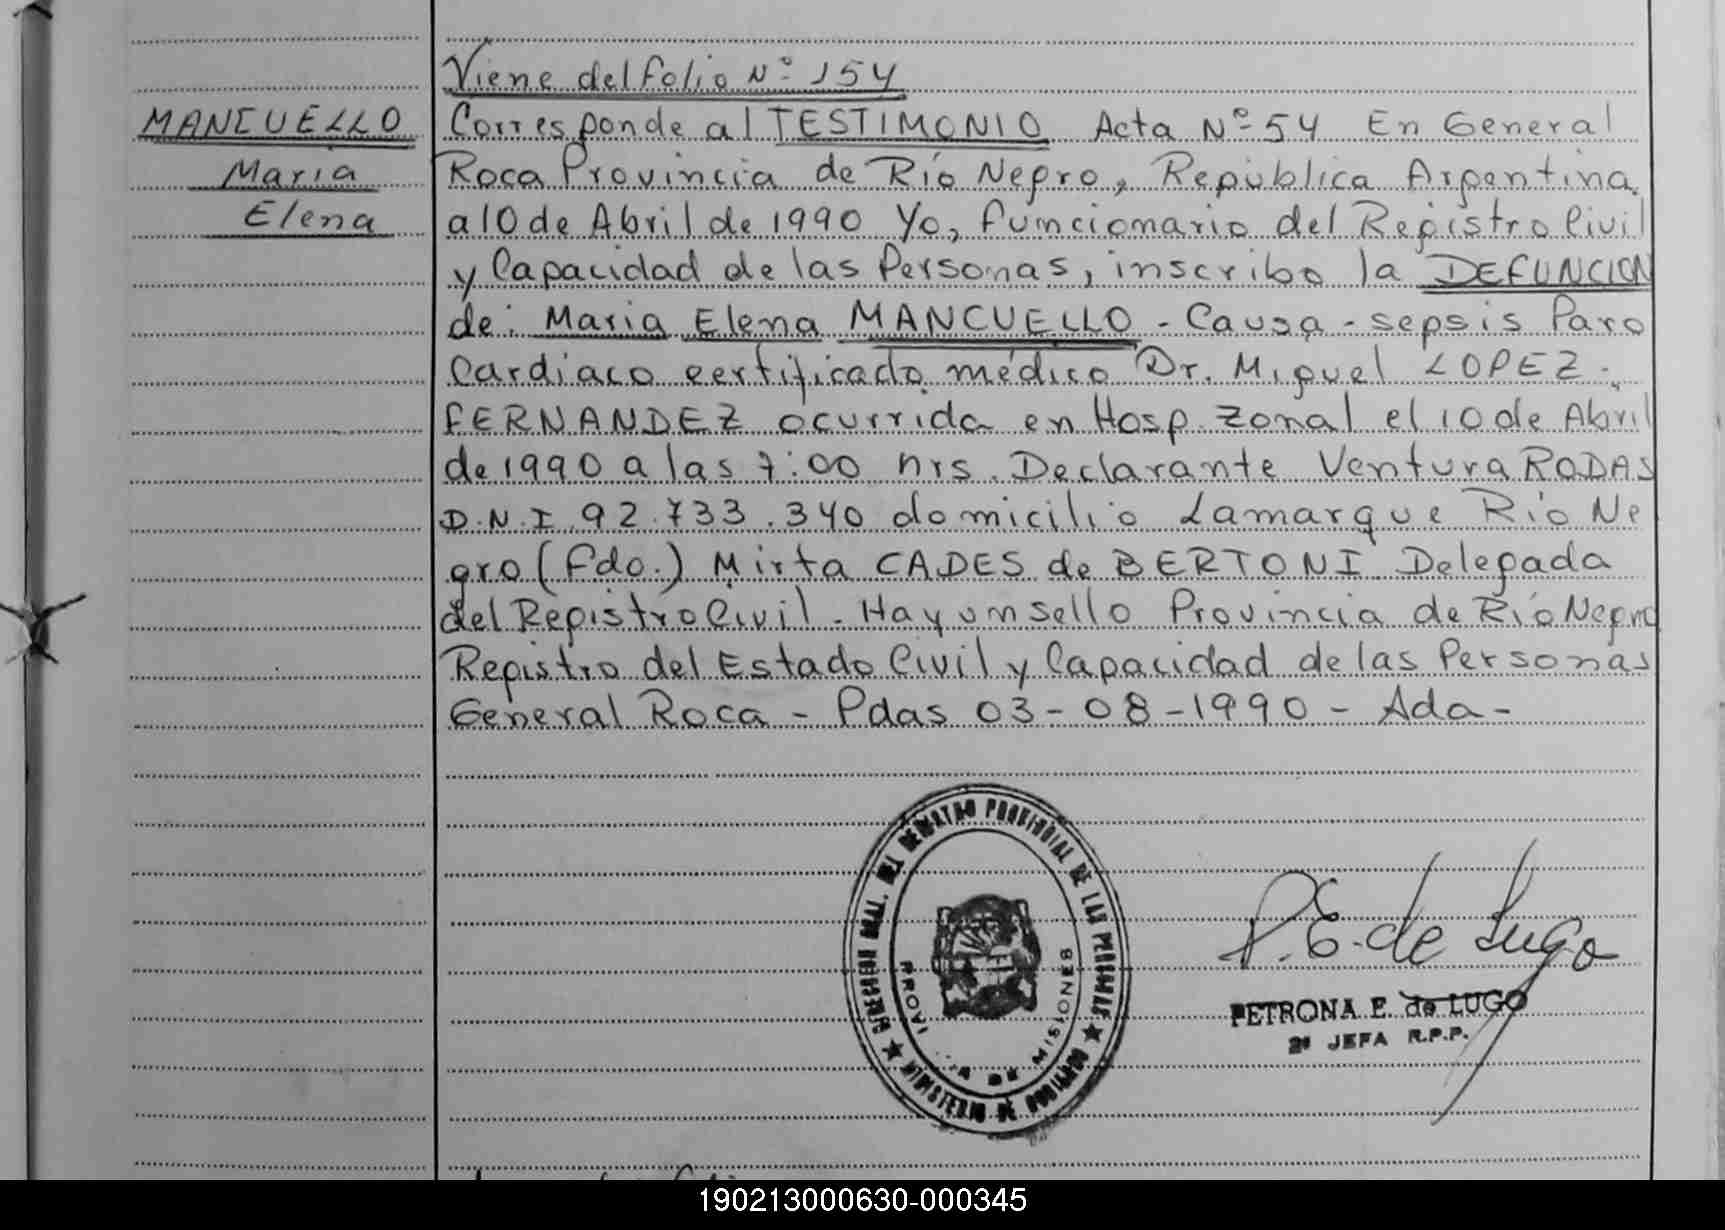 Viene del folio Nº 154
MANCUELLO
Maria
Elena
Corresponde al TESTIMONIO Acta Nº 54 En General
Roca Provincia de Río Negro, República Argentina
a 10 de Abril de 1990 Yo, funcionario del Registro Civil
y Capacidad de las Personas, inscribo la DEFUNCION
de: Maria Elena MANCUELLO - Causa - sepsis Paro
Cardiaco certificado médico Dr. Miguel LOPEZ
FERNANDEZ ocurrida en Hosp. Zonal el 10 de Abril
de 1990 a las 7:00 hrs. Declarante Ventura RODAS
D.N.I. 92.733.340 domicilio Lamarque Río Ne
gro (Fdo.) Mirta CADES de BERTONI Delegada
del Registro Civil - Hay un sello Provincia de Río Negro
Registro del Estado Civil y Capacidad de las Personas
General Roca - Pdas 03-08-1990 - Ada -
DIRECCION GRAL. DEL REGISTRO PROVINCIAL DE LAS PERSONAS
★ MINISTERIO DE GOBIERNO ★
DE MISIONES
P.E. de Lugo
PETRONA E. de LUGO
2ª JEFA R.P.P.
190213000630-000345